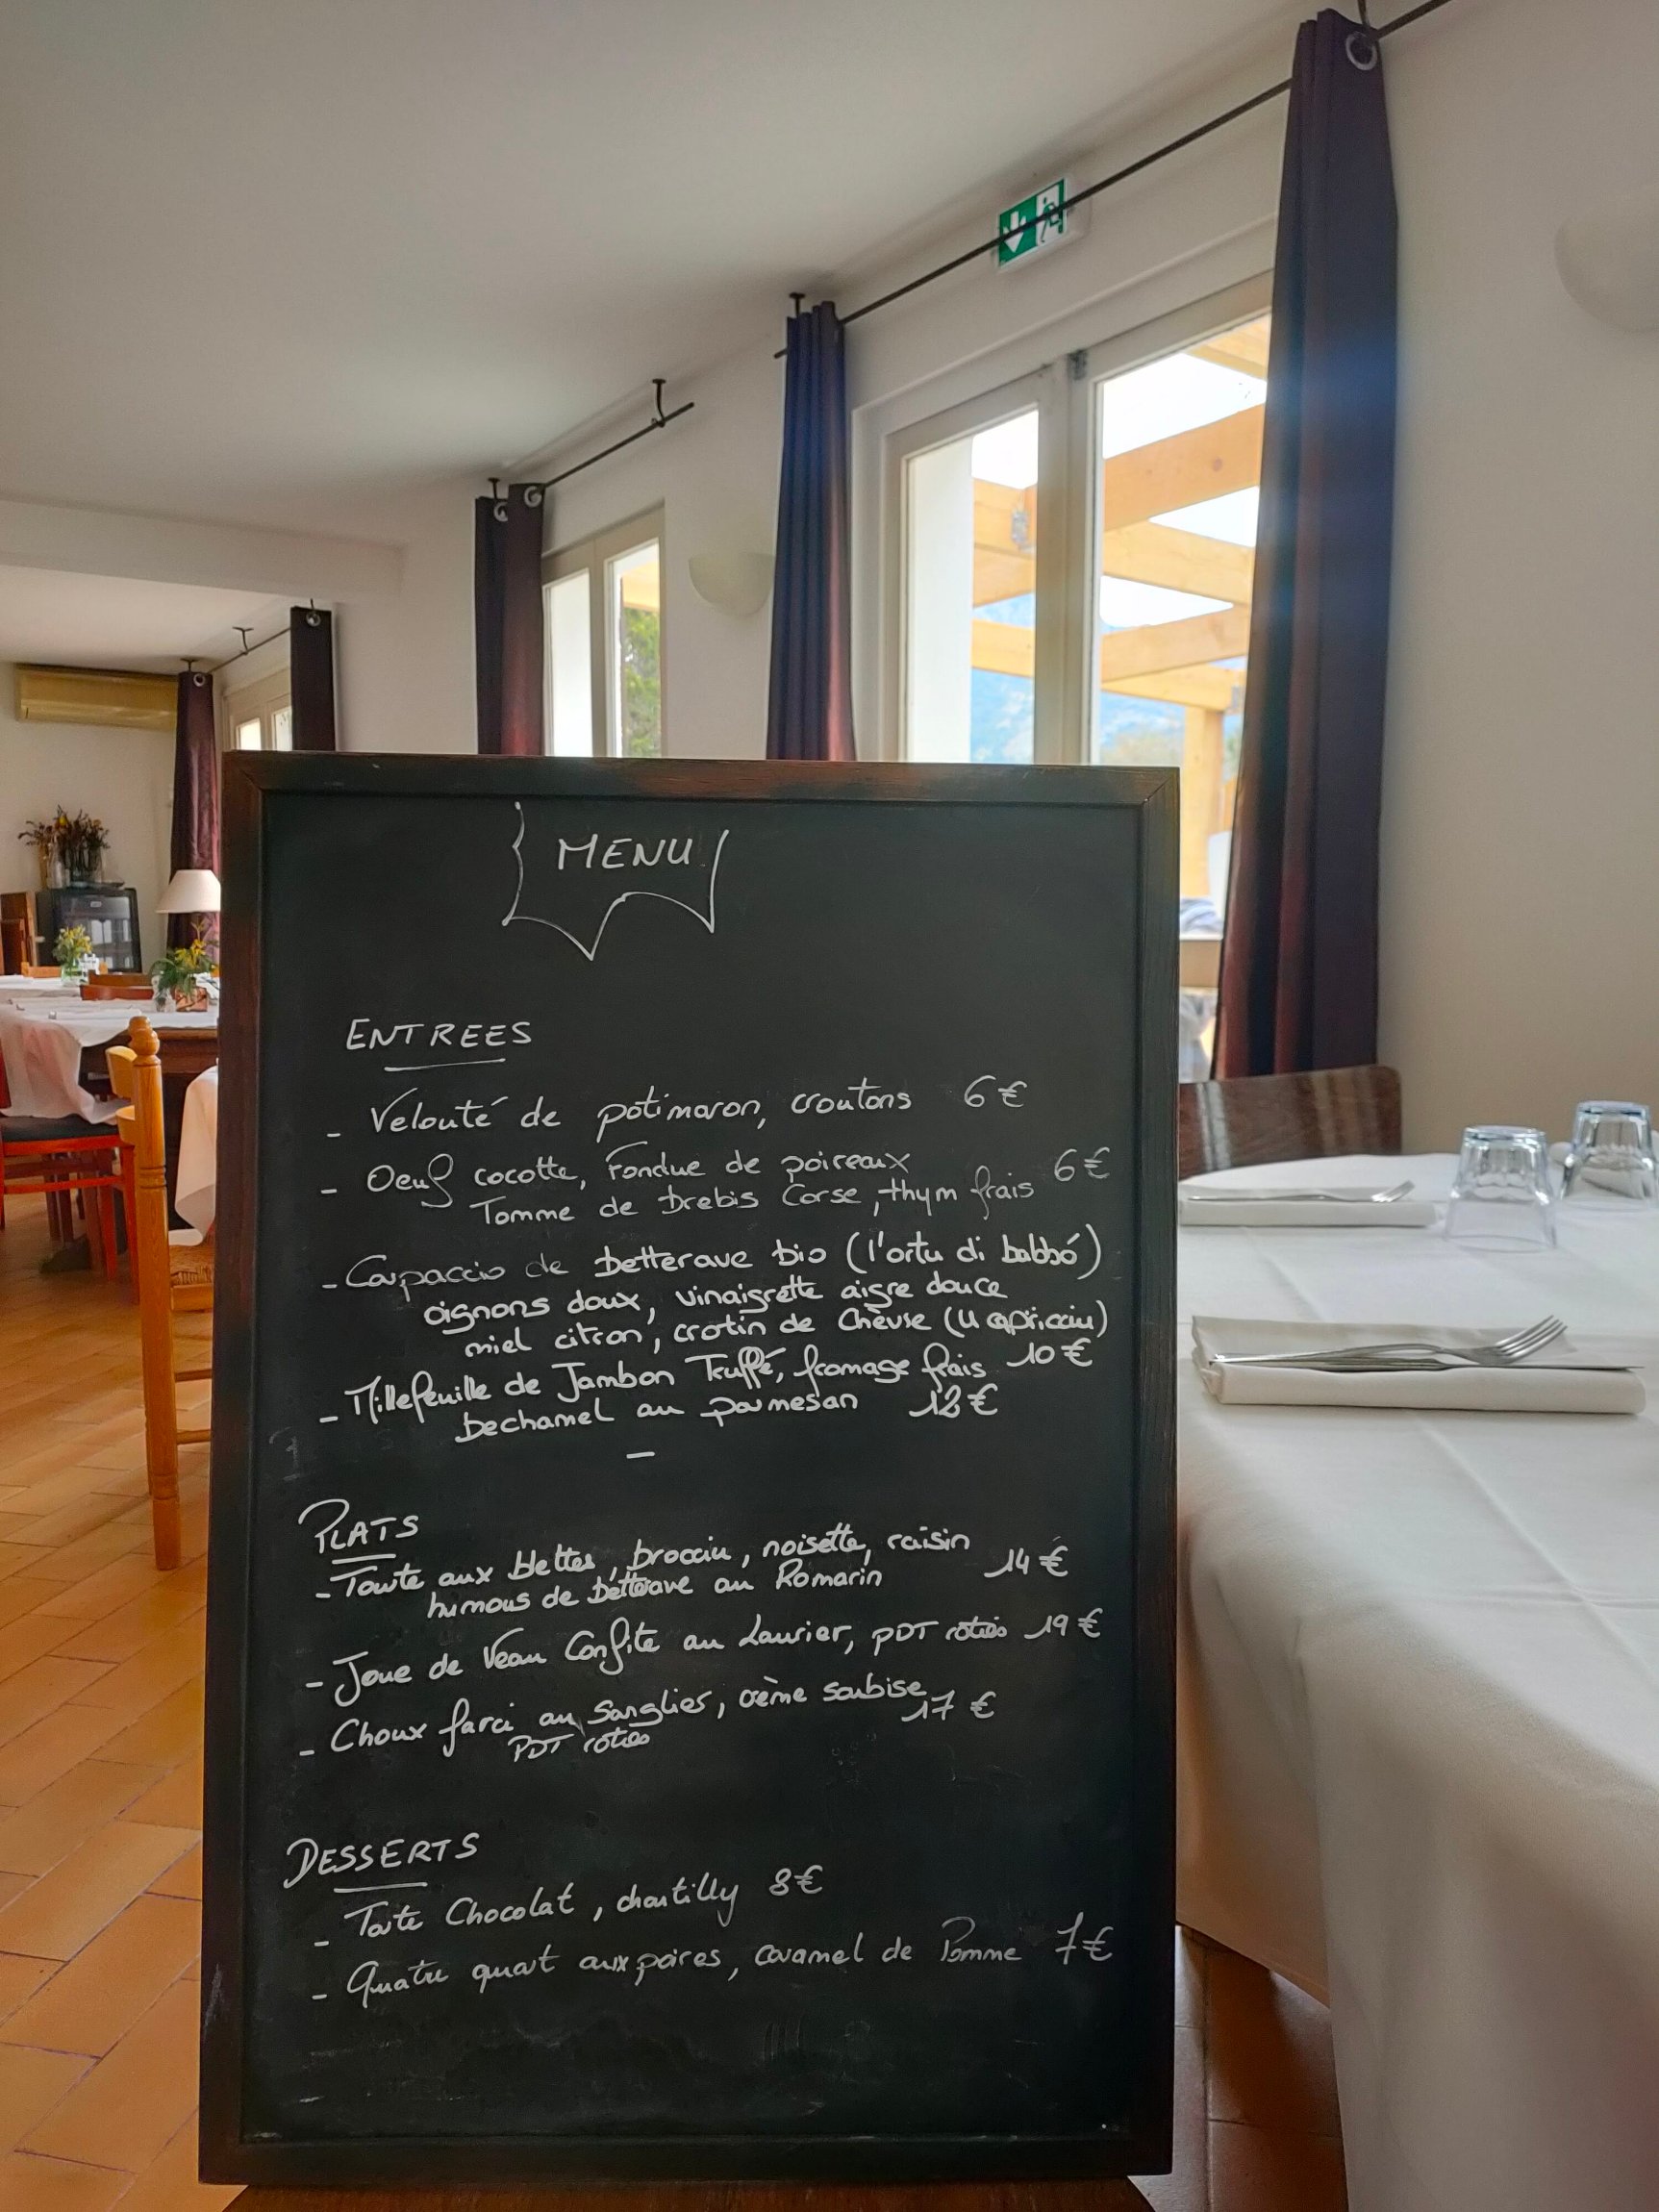 MENU
ENTREES
- Velouté de potimaron, croutons 6€
- Oeuf cocotte, Fondue de poireaux 6€
Tomme de Brebis Corse, thym frais
- Carpaccio de betterave bio (l'ortu di babbó)
oignons doux, vinaigrette aigre douce
miel citron, crotin de Chèvre (U capricciu)
10€
- Millefeuille de Jambon Truffé, fromage frais
bechamel au parmesan 12€
-
PLATS
- Tourte aux blettes, brocciu, noisette, raisin 14€
humous de bétterave au Romarin
- Joue de Veau Confite au Laurier, PDT roties 19€
- Choux farci au Sanglier, crème soubise 17€
PDT roties
DESSERTS
- Tarte Chocolat, chantilly 8€
- Quatre quart aux poires, caramel de Pomme 7€